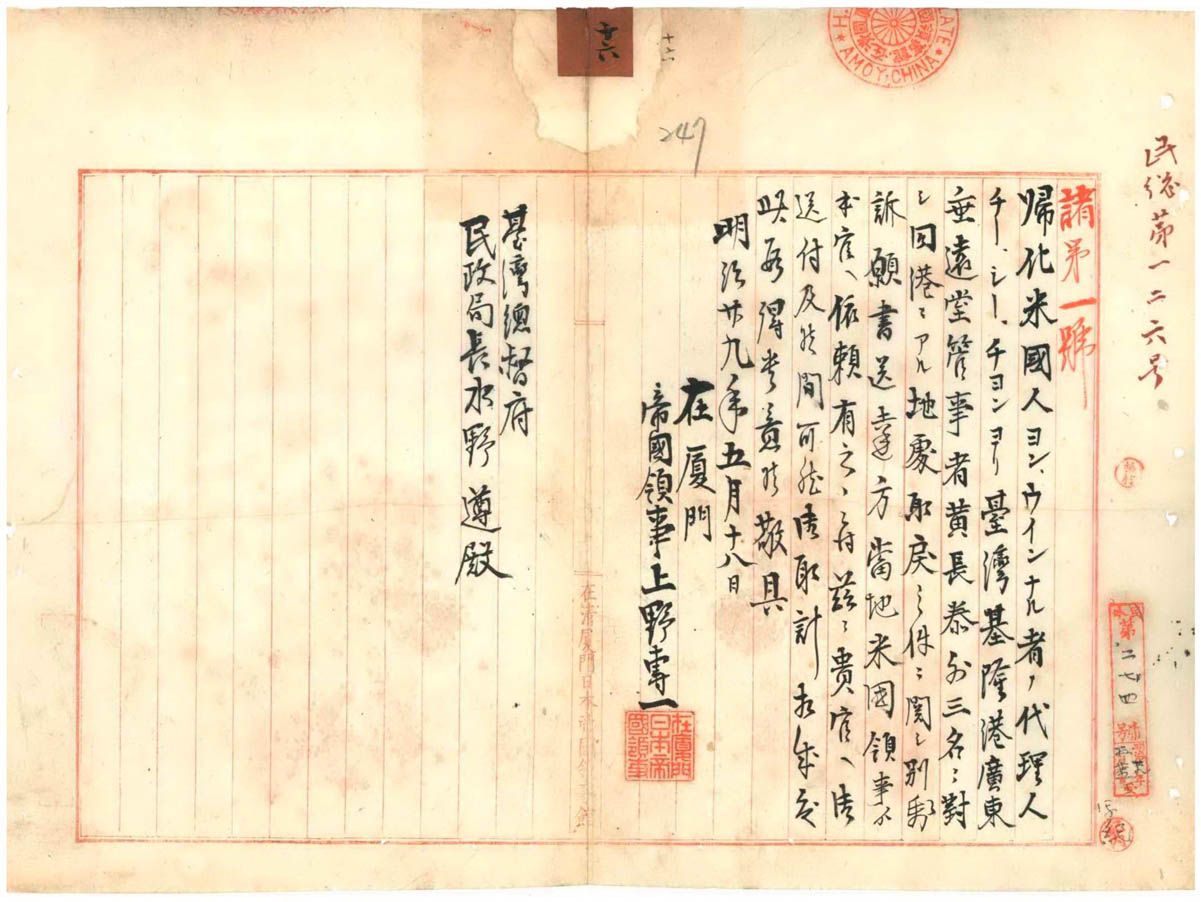 民総第一二六号
諸第一號
帰化米國人ヨン、ウインナル者ノ代理人
チー、シー、チヨンヨリ臺灣基隆港廣東
垂遠堂管事者黄長泰外三名ニ對
シ同港ニアル地處取戻之件ニ関シ別紙
訴願書送達方當地米國領事ヨリ
本官ヘ依頼有之ニ付茲ニ貴官ヘ御
送付及候間可然御取計相成度
此段得貴意候敬具
明治廿九年五月十八日
在厦門
帝國領事上野専一
在厦門日本帝國領事
臺灣總督府
民政局長水野遵殿
十六
十六
247
AMOY, CHINA
第二七四號